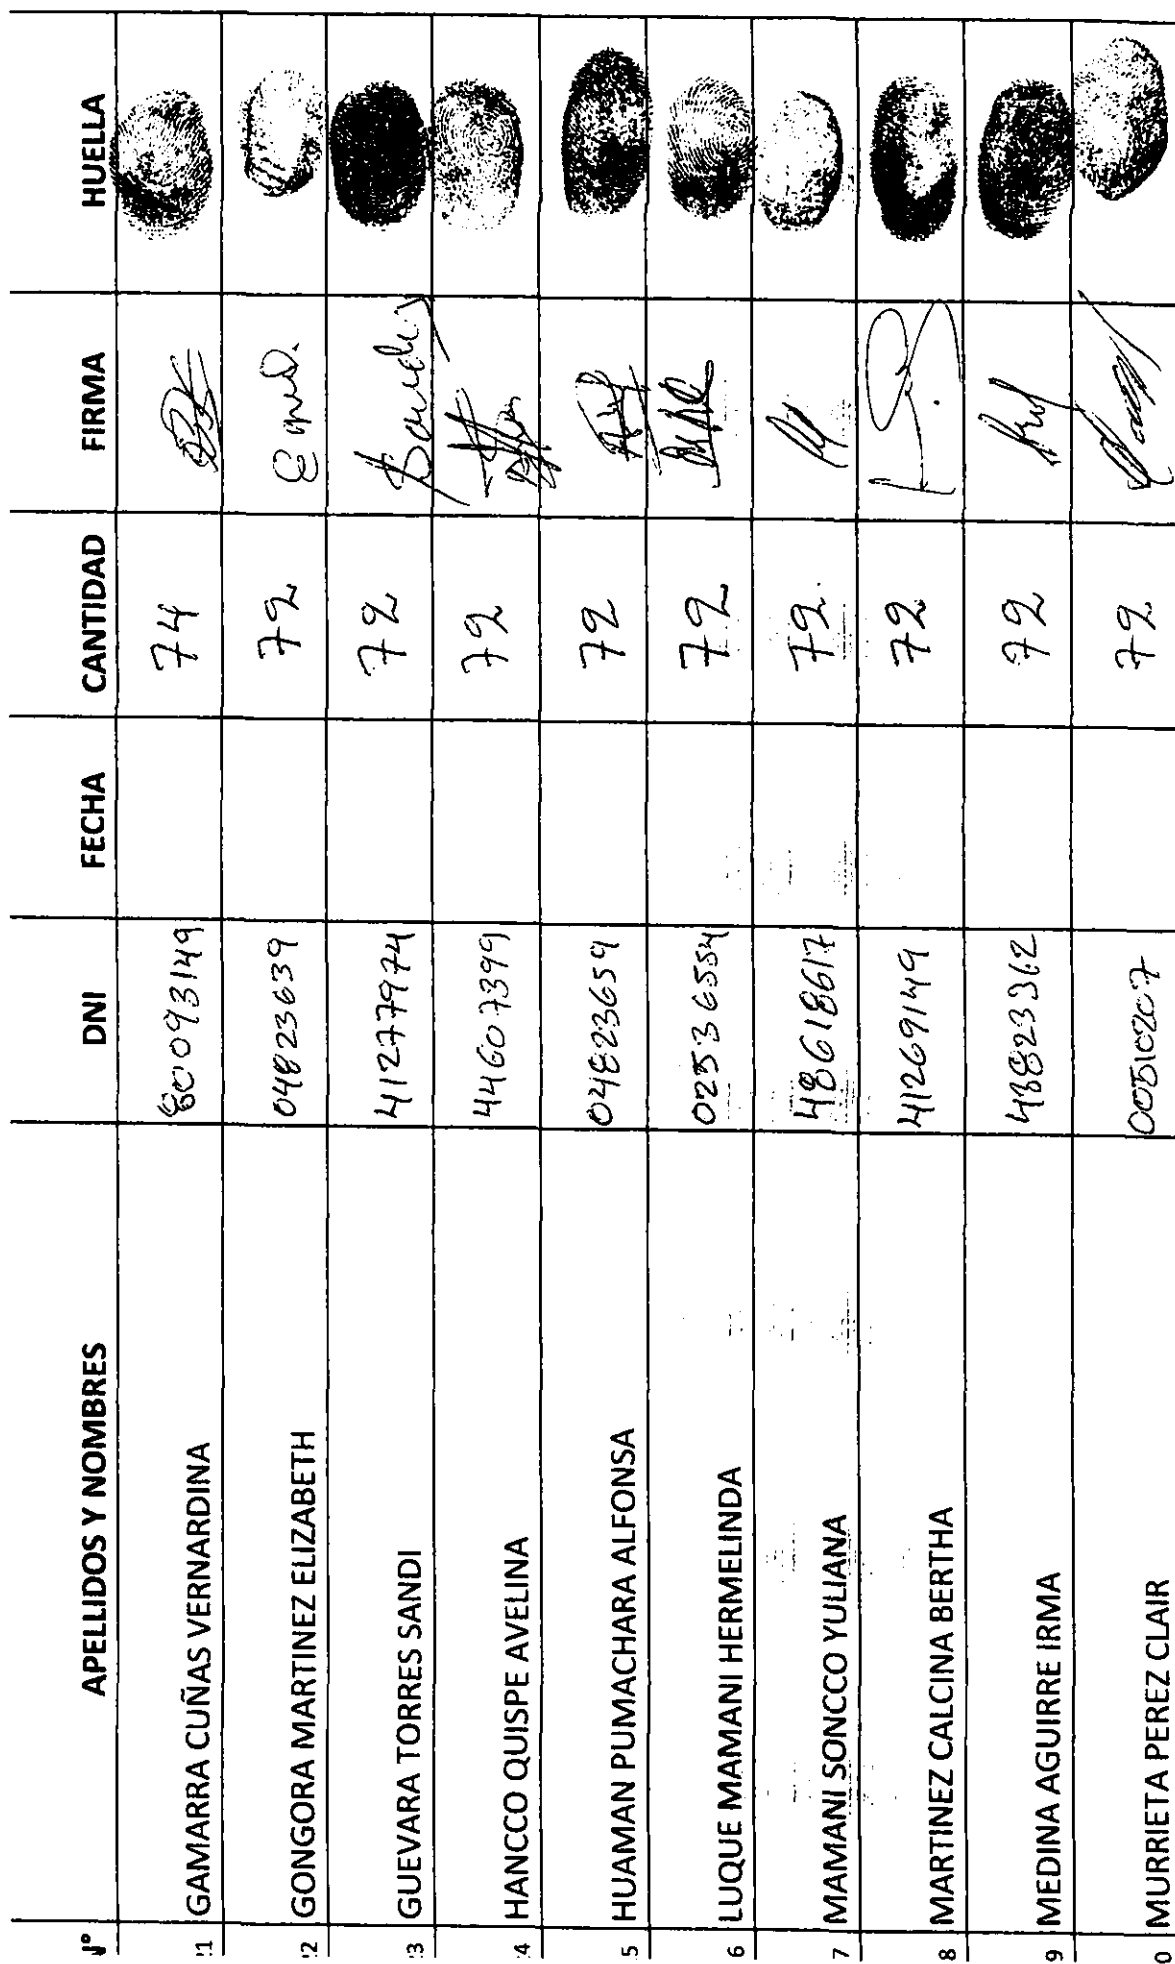 N° APELLIDOS Y NOMBRES DNI FECHA CANTIDAD FIRMA HUELLA
21 GAMARRA CUÑAS VERNARDINA 80093149 74
22 GONGORA MARTINEZ ELIZABETH 04823639 72
23 GUEVARA TORRES SANDI 41277974 72
24 HANCCO QUISPE AVELINA 44607399 72
5 HUAMAN PUMACHARA ALFONSA 04823659 72
6 LUQUE MAMANI HERMELINDA 02536554 72
7 MAMANI SONCCO YULIANA 48618617 72
8 MARTINEZ CALCINA BERTHA 41269149 72
9 MEDINA AGUIRRE IRMA 48823362 72
0 MURRIETA PEREZ CLAIR 00510207 72